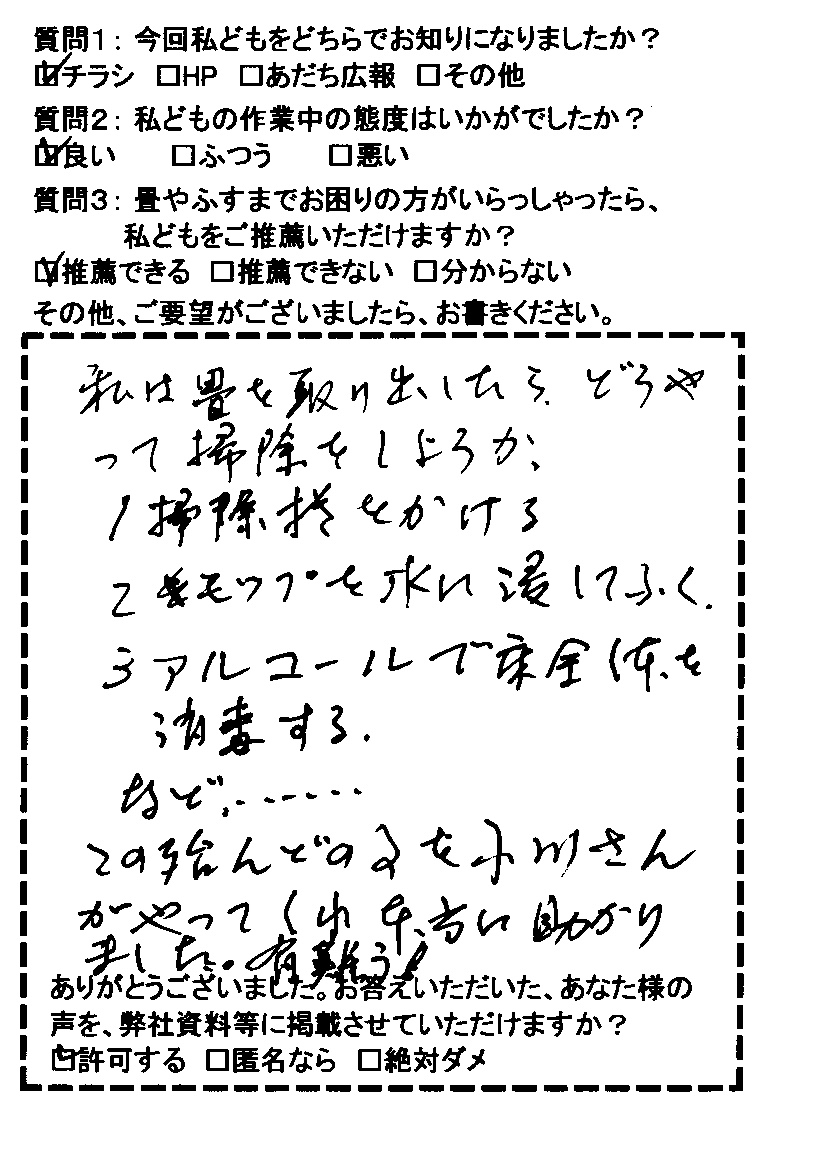 質問1：今回私どもをどちらでお知りになりましたか？
☑チラシ □HP □あだち広報 □その他
質問2：私どもの作業中の態度はいかがでしたか？
☑良い □ふつう □悪い
質問3：畳やふすまでお困りの方がいらっしゃったら、
私どもをご推薦いただけますか？
☑推薦できる □推薦できない □分からない
その他、ご要望がございましたら、お書きください。
私は畳を取り出したら、どうや
って掃除をしようか、
1掃除機をかける
2 モップを水に浸してふく.
3アルコールで床全体を
消毒する.
など,......
この殆んどの事を小川さん
がやってくれ本当に助かり
ました。有難う!
ありがとうございました。お答えいただいた、あなた様の
声を、弊社資料等に掲載させていただけますか？
☑許可する □匿名なら □絶対ダメ